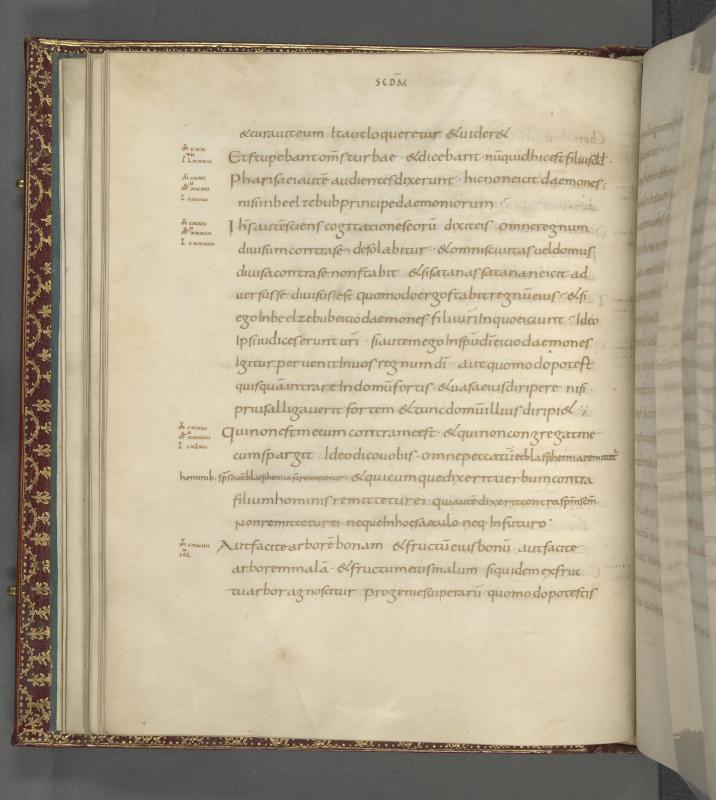 SCDM̄
& curauit eum Ita ut loqueretur & uider&
Et stupebant oms turbae & dicebant nūquid hic est filius dd̄.
Pharisaei autē audientes dixerunt hic non eicit daemones
nisi in beelzebub principe daemoniorum
Ihs autē sciens cogitationes eorū dixit eis omne regnum
diuisum contra se desolabitur & omnis ciuitas uel domus
diuisa contra se non stabit & si satanas satanan eicit ad
uersus se diuisus est quomodo ergo stabit regnū eius & si
ego In beelzebub eicio daemones filii uri In quo eiciunt Ideo
Ipsi iudices erunt uri si autem ego In spū dī eicio daemones
Igitur peruenit In uos regnum dī aut quomodo potest
quisquā intrare In domū fortis & uasa eius diripere nisi
prius alligauerit fortem & tunc domū illius diripi&
Qui non est mecum contra me est & qui non congregat me
cum spargit Ideo dico uobis omne peccatū et blasphemia remittit̄
hominib. sp̄s autē blasphemia n̄ remittetur & quicumque dixerit uerbum contra
filium hominis remittetur ei qui autē dixerit contra spm̄ scm̄
non remittetur ei neque In hoc saeculo neq. In futuro
Aut facite arborē bonam & fructū eius bonū aut facite
arborem malā & fructum eius malum siquidem ex fruc
tu arbor agnoscitur progenies uiperarū quomodo potestis